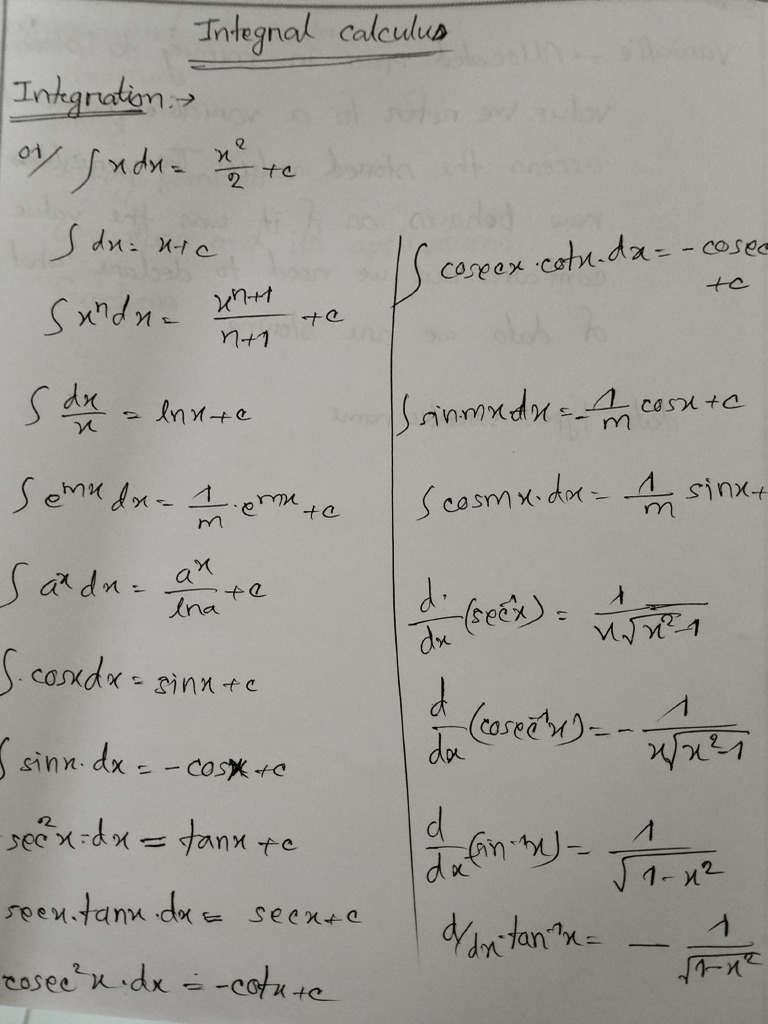 Integral calculus
Integration:→
01/ ∫ x dx = x²/2 + c
∫ dx = x + c
∫ xⁿ dx = xⁿ⁺¹/n+1 + c
∫ dx/x = lnx + c
∫ eᵐˣ dx = 1/m · eᵐˣ + c
∫ aˣ dx = aˣ/lna + c
∫ · cosx dx = sinx + c
∫ sinx · dx = -cosx + c
sec²x · dx = tanx + c
secx · tanx · dx = secx + c
cosec²x · dx = -cotx + c
∫ cosecx · cotx · dx = -cosec
+c
∫ sinmx dx = -1/m cosx + c
∫ cosmx · dx = 1/m sinx +
d/dx (sec⁻¹x) = 1/x√x²-1
d/dx (cosec⁻¹x) = - 1/x√x²-1
d/dx (sin⁻¹x) = 1/√1-x²
d/dx · tan⁻¹x = - 1/√1-x²